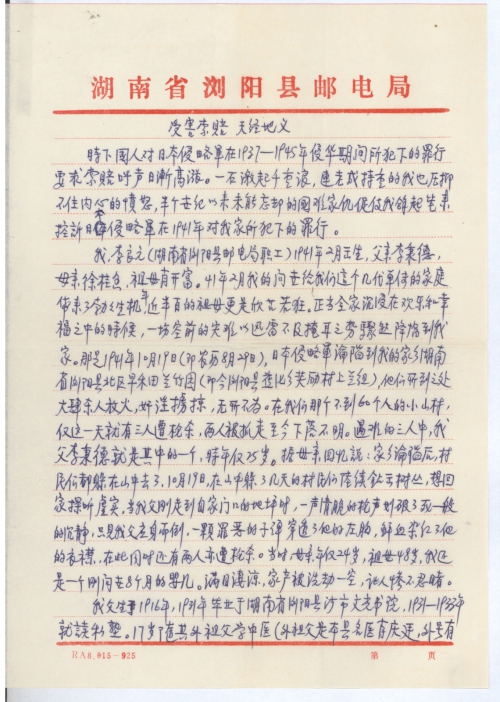 湖南省浏阳县邮电局
受害索赔 天经地义
时下国人对日本侵略军在1937—1945年侵华期间所犯下的罪行
要求索赔呼声日渐高涨。一石激起千重浪，连老成持重的我也压抑
不住内心的愤怒，半个世纪以来未能忘却的国难家仇促使我锦起笔来
控诉日本侵略军在1941年对我家所犯下的罪行。
我，李 (湖南省浏阳县邮电局职工)1941年2月出生，父亲李秉德，
母亲徐桂良，祖母有开富。41年2月我的问世给我们这个几代单传的家庭
带来了勃勃生机，年近半百的祖母更是欣若狂。正当全家沉浸在欢乐和幸
福之中的时候，一场空前的灾难以迅雷不及掩耳之势骤然降临到我
家。那是1941年10月19日(即农历8月29日)，日本侵略军沦陷到我的家乡湖南
省浏阳县北区 兰竹园(即今浏阳县 乡奖励村上兰组)，他们所到之处
大肆杀人放火，奸淫掳掠，无所不为。在我们那个不到60个人的小山村，
仅这一天就有三人遭枪杀，两人被抓走至今下落不明。遇难的三人中，我
父亲李秉德就是其中的一个，时年仅25岁。据母亲回忆说：家乡沦陷后，村
民们都躲在山中去了，10月19日，在山中躲了几天的村民们陆续 树丛，想回
家探听虚实，当我父刚走到自家门口的地坪时，一声清脆的枪声划破了死一般
的沉静，只见我父亲身而倒，一颗罪恶的子弹穿透了他的左胸，鲜血染红了他
的衣襟，在此同时还有两人亦遭枪杀。当时母亲年仅24岁，祖母48岁，我还
是一个刚问世8个月的婴儿。满目凄凉，家产被洗劫一空，让人惨不忍睹。
我父生于1916年，1931年毕业于湖南省浏阳县沙市文光书院，1931—1933年
就读私塾。17岁随其外祖父学中医(外祖父是本县名医有庆廷，外号有
RA8.015—925
第 页